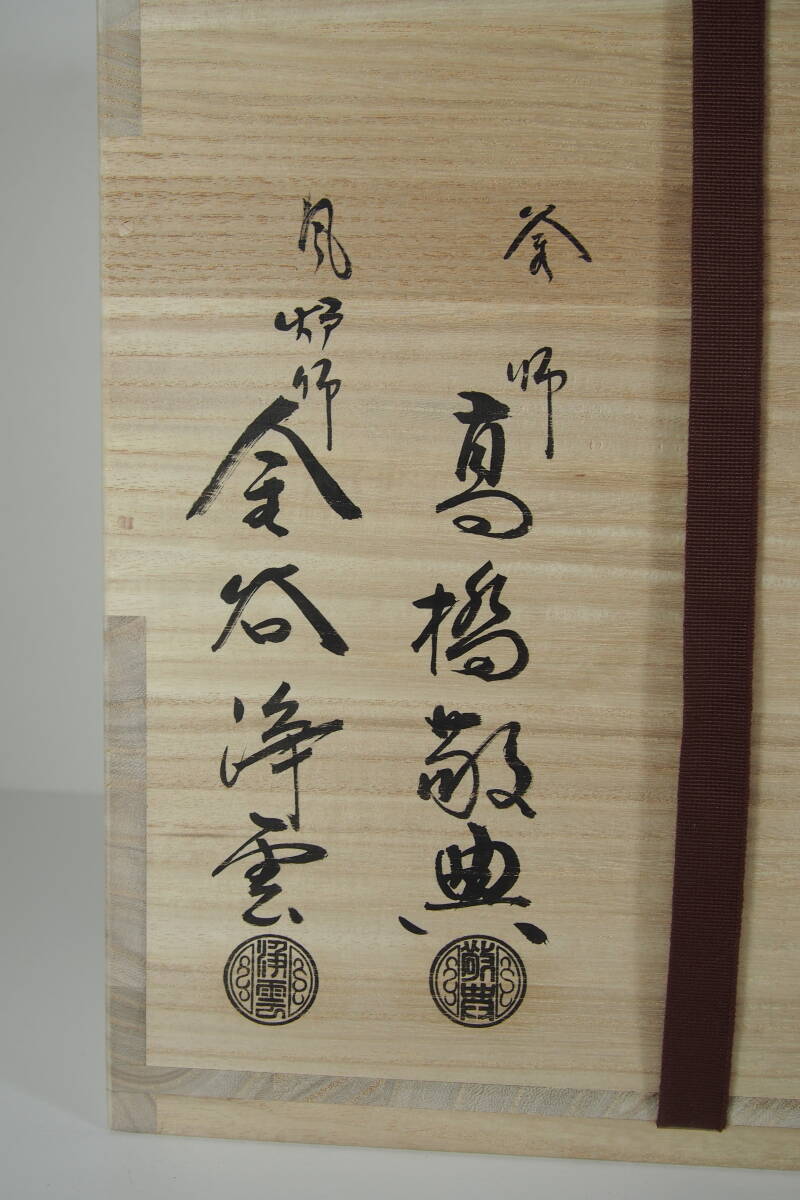 釜師 高橋敬典
敬典
風炉師 金谷浄雲
浄雲